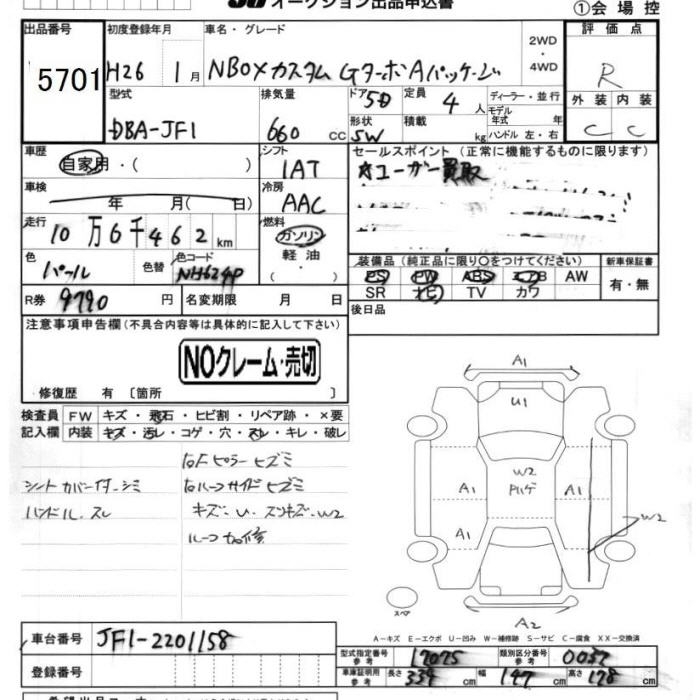 オークション出品申込書
①会場控
出品番号 初度登録年月 車名・グレード 2WD ・ 4WD 評価点
5701 H26 1月 NBOXカスタム GターボAパッケージ R
型式 排気量 ドア 定員 ディーラー・並行 外装 内装
DBA-JF1 660 cc 5D 4人 モデル年式 年 C C
形状 積載 kg ハンドル 左・右
SW
車歴 シフト セールスポイント(正常に機能するものに限ります)
自家用・( ) 1AT ☆ユーザー買取
車検 冷房
年 月( 日) AAC
走行 燃料
10万6千462km ガソリン
軽油
( )
色 色替 色コード 装備品(純正品に限り○をつけてください) 新車保証書
パール NH624P PS PW ABS エアB AW 有・無
SR ナビ TV カワ
R券 9790円 名変期限 月 日 後日品
注意事項申告欄(不具合内容等は具体的に記入して下さい)
NOクレーム・売切
修復歴 有 〔箇所 〕
検査員 FW キズ・飛石・ヒビ割・リペア跡・×要
記入欄 内装 キズ・汚レ・コゲ・穴・スレ・キレ・破レ
右Fピラーヒズミ
シートカバー付・シミ 右ルーフサイドヒズミ
ハンドル、スレ キズ・U・スリキズ・W2
ルーフ加修
A1
U1
W2
A1 A1
A1
W2
スペア
A2
A-キズ E-エクボ U-凹み W-補修跡 S-サビ C-腐食 XX-交換済
車台番号 JF1-2201158
型式指定番号 参考 17075 類別区分番号 参考 0037
登録番号 車庫証明用 参考 長さ 339cm 幅 147cm 高さ 178cm